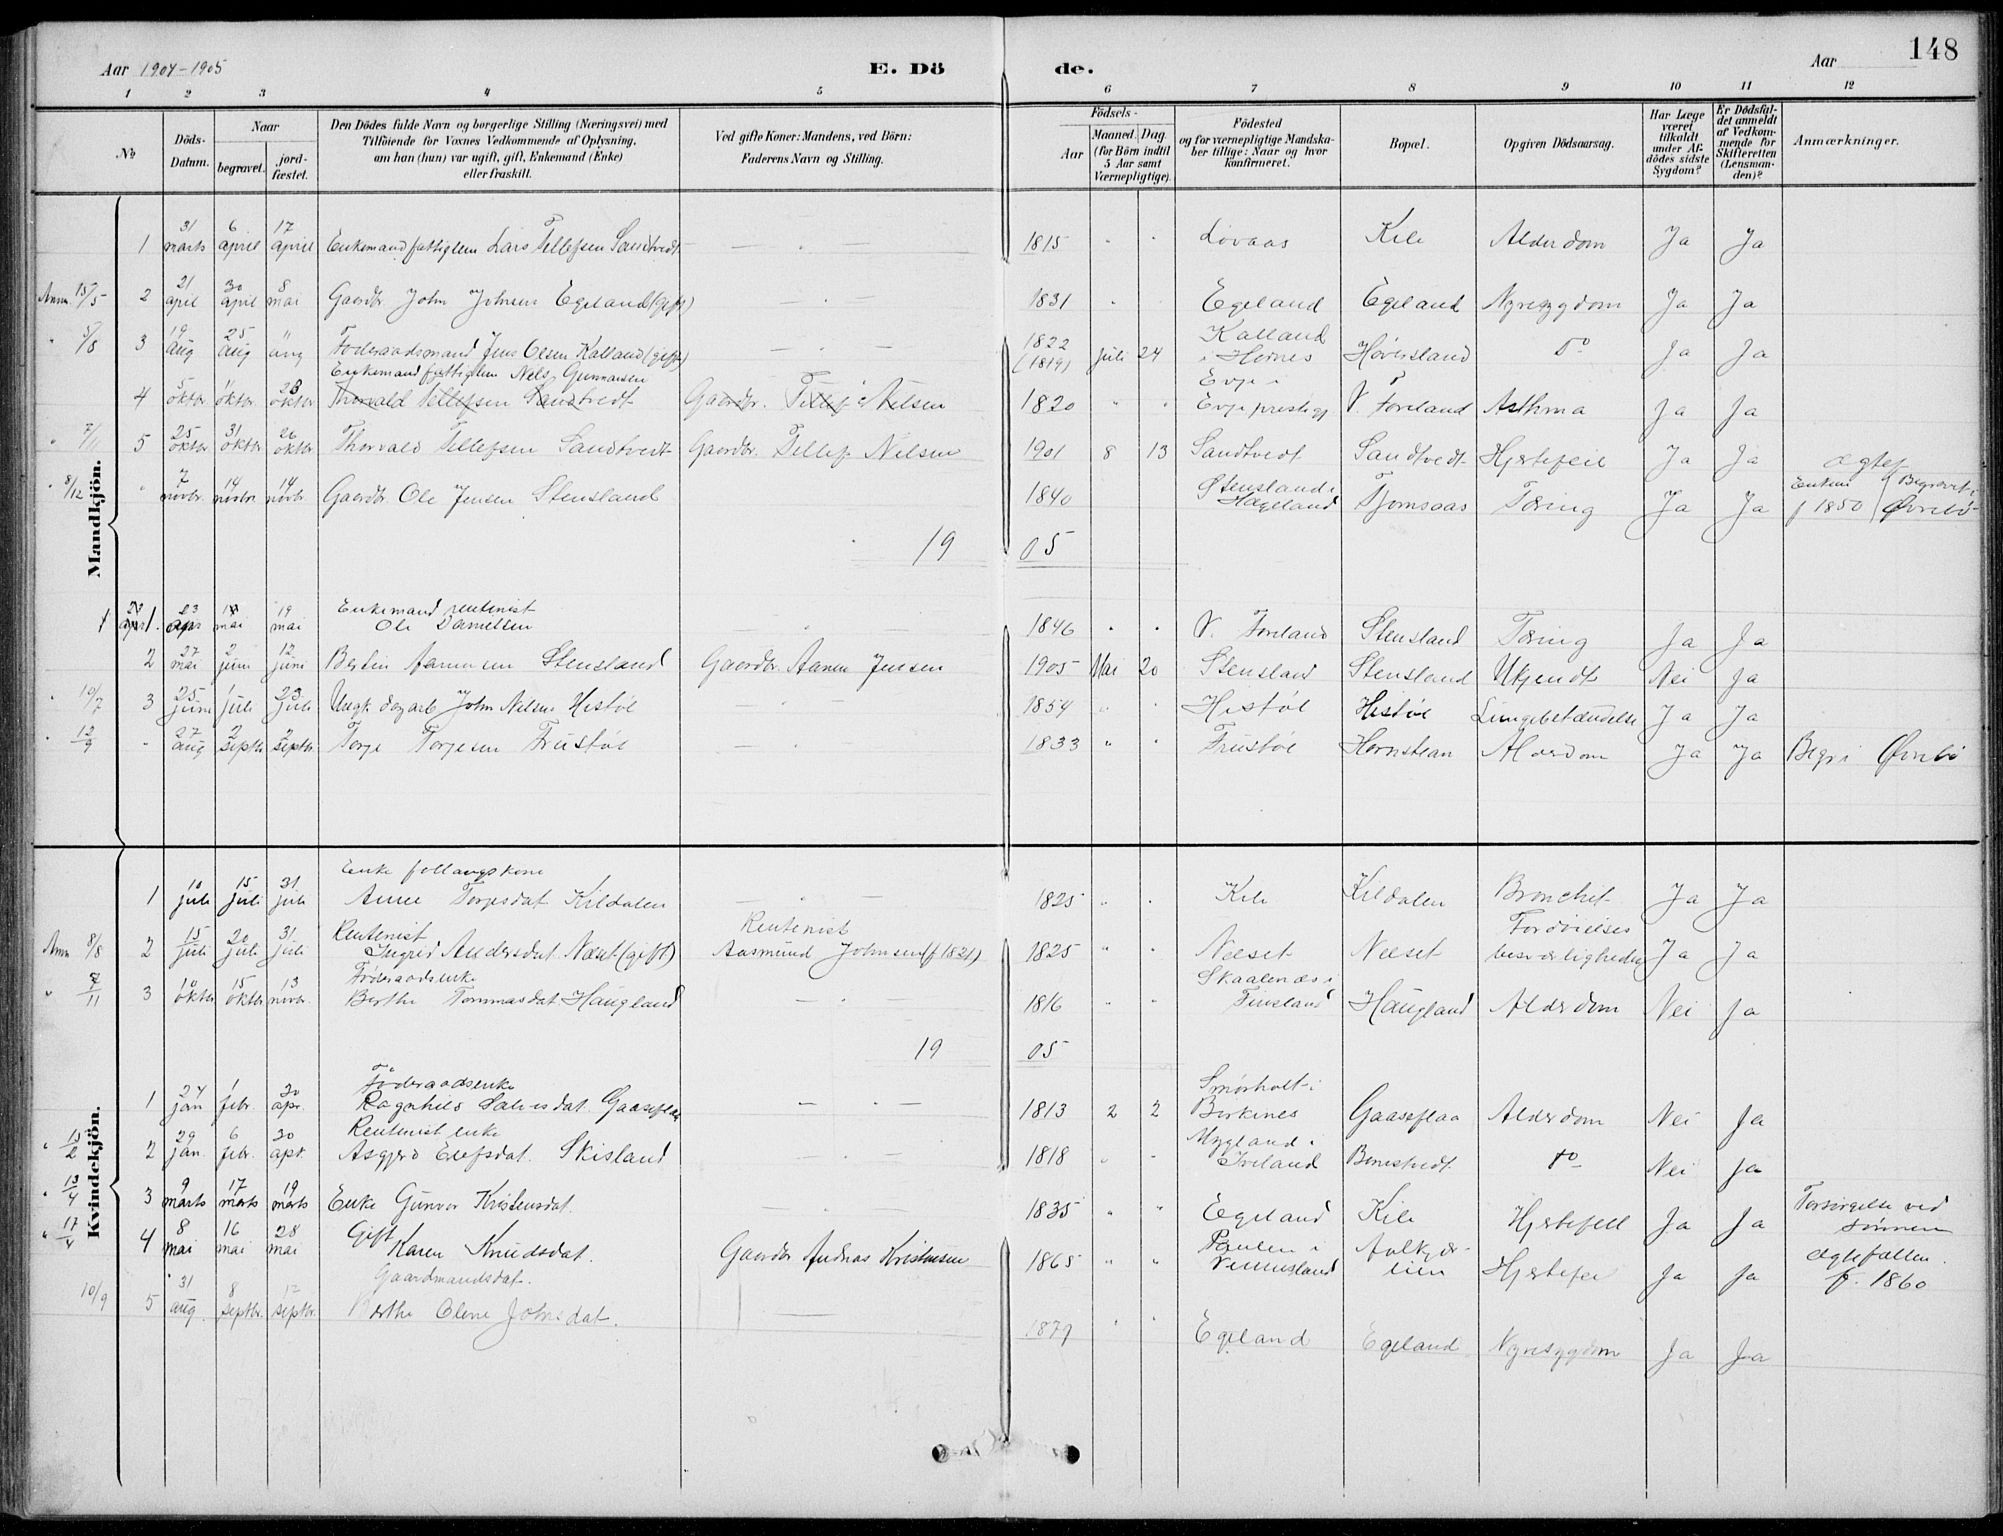 148
Aar 1904-1905
E. Dö
de.
Aar
1 2 3 4 5 6 7 8 9 10 11 12
No
Döds-Datum.
Naar
begravet.
jord-fæstet.
Den Dödes fulde Navn og borgerlige Stilling (Næringsvei) med
Tilföiende for Voxnes Vedkommende af Oplysning,
om han (hun) var ugift, gift, Enkemand (Enke)
eller fraskilt.
Ved gifte Koner: Mandens, ved Börn:
Faderens Navn og Stilling.
Födsels-
Aar
Maaned. Dag
(for Börn indtil
5 Aar samt
Værnepligtige).
Födested
og for værnepligtige Mandska-
ber tillige: Naar og hvor
konfirmeret.
Bopæl.
Opgiven Dödsaarsag.
Har Læge
været
tilkaldt
under Af-
dödes sidste
Sygdom?
Er Dödsfal-
det anmeldt
af Vedkom-
mende for
Skifteretten
(Lensman-
den)?
Anmærkninger.
Mandkjön.
1 31 marts 6 april 17 april Enkemand fattiglem Lars Tellefsen Sandtvedt 1815 Lovaas Kile Alderdom Ja Ja
Anm. 15/5 2 21 april 30 april 8 mai Gaardbr. John Johnsen Egeland (gift) 1831 Egeland Egeland Nyresygdom Ja Ja
" 5/8 3 19 aug 25 aug " aug Foderaadsmand Jens Olsen Kalland (gift) 1822 (1819) Juli 24 Kalland i Hornes Høversland Do Ja Ja
Enkemand fattiglem Nels Gunnarsen
4 5 oktbr " oktbr. 23 oktbr Thorvald Tellefsen Sandtvedt Gaardbr. Tellef Nilsen 1820 Evje i Evje prestegj V. Foreland Asthma Ja Ja
" 7/11 5 25 oktbr 31 oktbr 26 oktbr Thorvald Tellefsen Sandtvedt Gaardbr. Tellef Nilsen 1901 8 13 Sandtvedt Sandtvedt Hjertefeil Ja Ja
" 8/12 " 7 novbr. 14 novbr 14 novbr Gaardbr. Ole Jensen Stensland 1840 Stensland i Hægeland Tjomsaas Tæring Ja Ja Ægtef Enken f 1850 Begravet i Øvrebø
1905
1 23 apr mai 19 mai Enkemand rentenist Ole Danielsen 1846 V. Foreland Stensland Tæring Ja Ja
2 27 mai 2 juni 12 juni Bertin Aanensen Stensland Gaardbr. Aanen Jensen 1905 Mai 20 Stensland Stensland Ukjendt Nei Ja
" 10/7 3 25 juni 1 juli 23 juli Ungk. dagarb John Nilsen Histøl 1854 Histøl Histøl Lungebetændelse Ja Ja
" 12/9 " 27 aug 2 septbr 2 septbr. Torje Torjesen Frustøl 1833 Frustøl Hornstean Alderdom Ja Ja Begr. i Øvrebø
Kvindekjön.
1 10 juli 15 juli 31 juli Enke Anne Torjesdat Kildalen 1825 Kile Kildalen Bronchit Ja Ja
Anm 8/8 2 15 juli 20 juli 31 juli Rentenist Ingrid Andersdat Næset (gift) Rentenist Aasmund Johnsen (f 1821) 1825 Neeset Neeset Fordøielsesbesværligheder Ja Ja
" 7/11 3 10 oktbr 15 oktbr 13 novbr. Føderaadsenke Berthe Tommasdat Haugland 1816 Skaalenæs i Finsland Haugland Alderdom Nei Ja
1905
1 24 jan 1 febr. 30 apr. Føderaadsenke Ragnhild Salvesdat. Gaaseflaa 1813 2 2 Smørholt i Birkenes Gaaseflaa Alderdom Nei Ja
" 15/2 2 29 jan. 6 febr. 30 apr. Rentenist enke Asgjerd Elefsdat. Skisland 1818 Mygland i Iveland Bonestvedt Do Nei Ja
" 13/4 3 9 marts 17 marts 19 marts Enke Gunvor Kristensdat. 1835 Egeland Kile Hjertefeil Ja Ja Forsørgelse ved sønnen
" 17/4 4 8 mai 16 mai 28 mai Gift Karen Knudsdat. Gaardbr Andreas Kristensen 1865 Paulen i Vennesland Hjertefeil Ja Ja Ægtefællen f. 1860
10/9 5 31 aug. 8 septbr. 12 septbr. Gaardmandsdat. Berthe Olene Johnsdat. 1879 Egeland Egeland Nyresygdom Ja Ja